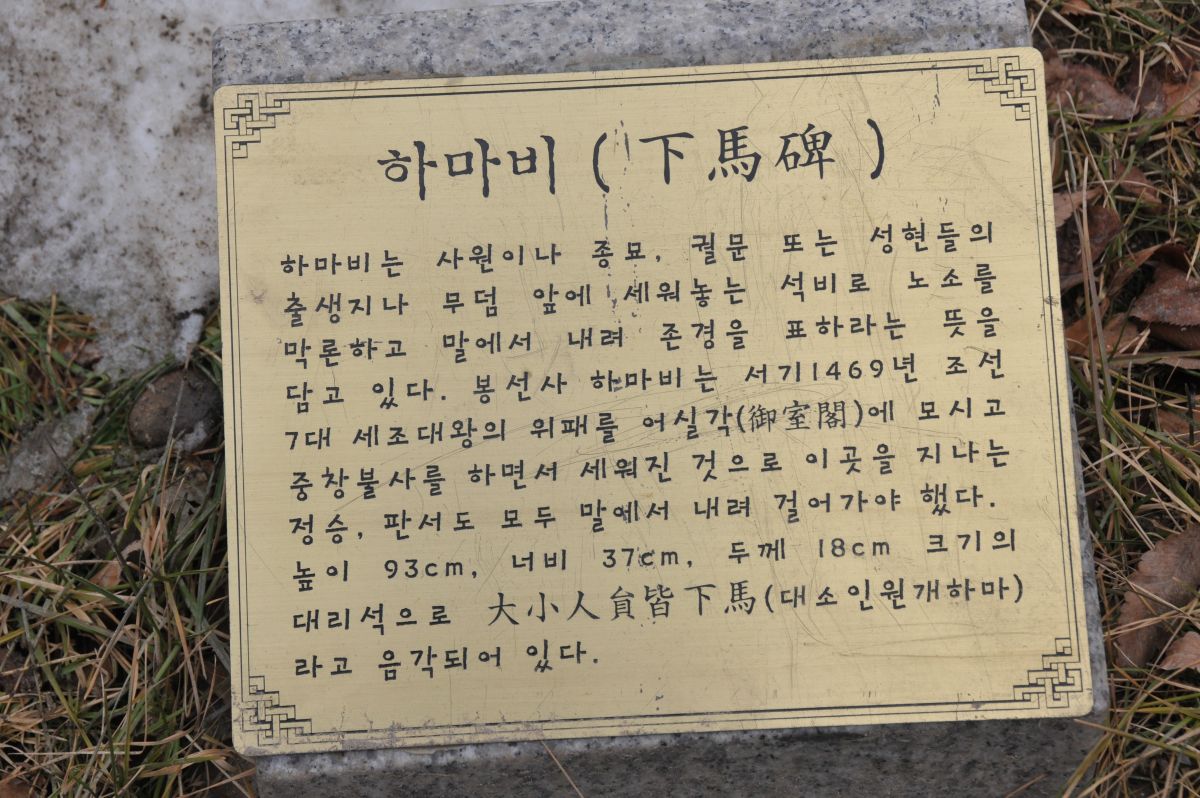 하마비 (下馬碑)
하마비는 사원이나 종묘, 궐문 또는 성현들의
출생지나 무덤 앞에 세워놓는 석비로 노소를
막론하고 말에서 내려 존경을 표하라는 뜻을
담고 있다. 봉선사 하마비는 서기1469년 조선
7대 세조대왕의 위패를 어실각(御室閣)에 모시고
중창불사를 하면서 세워진 것으로 이곳을 지나는
정승, 판서도 모두 말에서 내려 걸어가야 했다.
높이 93cm, 너비 37cm, 두께 18cm 크기의
대리석으로 大小人貟皆下馬(대소인원개하마)
라고 음각되어 있다.